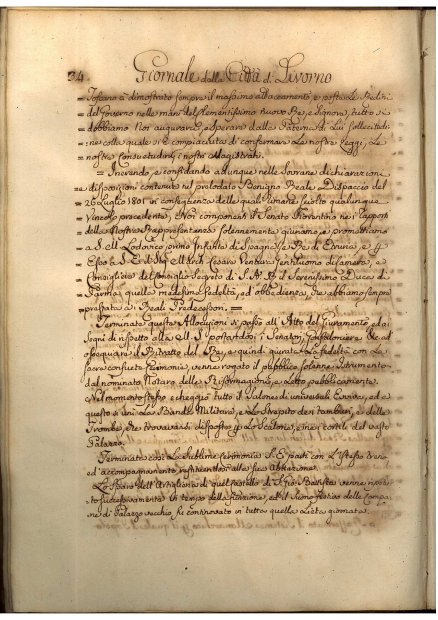 34. Giornale della Città di Livorno
= Toscano à dimostrato sempre il massimo attaccamento, e poste Le Redini
= del Governo nelle mani del Clementissimo nuovo Re, e Signore, tutto si
= dobbiamo Noi augurare, e sperare dalla Paterna di Lui sollecitudi:
= ne colla quale si è compiaciuta di confermare Le nostre Leggi, Le
= nostre consuetudini, i nostri Magistrati.
= Inerendo, e confidando adunque nelle Sovrane dichiarazioni
= disposizioni contenute nel prelodato Benigno Reale Dispaccio del
= 26 Luglio 1801 in conseguenza delle quali rimane sciolto qualunque
= Vincolo precedente, Noi componenti il Senato Fiorentino nei rapporti
= della Nostra Rappresentanza solennemente giuriamo, e promettiamo
= a S. M. Lodovico primo Infante di Spagna, e Re di Etruria, e
= Esso a S. E. il Sig. March. Cesare Ventura Gentiluomo di Camera, e
= Consigliere del Consiglio Segreto di S. A. R. il Serenissimo Duca di
= Parma, quella medesima fedeltà, ed obbedienza, che abbiamo sempre
= prestata ai Reali Predecessori. =
Terminate queste Allocuzioni si passò all'Atto del Giuramento, e dai
segni di rispetto alla M. S. portandosi i Senatori, Gonfaloniere &c. ad
ossequiare il Ritratto del Re, e quindi giurata La fedeltà con Le
sacre consuete Cerimonie, venne rogato il pubblico solenne Istrumento
dal nominato Notaro delle Riformagioni, e Letto pubblicamente.
Nel momento stesso echeggiò tutto il Salone di universali Evviva, ed a
questo si unì La Banda Militare, e lo Strepito dei tamburi, e delle
Trombe, che trovavansi disposte Lo Scalone, e nei cortili del vasto
Palazzo.
Terminata così La sublime Cerimonia S. E. partì con L'istesso treno
ed accompagnamento restituendosi alla sua Abitazione.
Lo Sparo dell'Artiglieria di questo forte di S. Gio: Battista venne
successivamente in tempo della funzione, ed il suono festivo delle Campa:
ne di Palazzo vecchio fu continovato in tutta quella Lieta giornata.